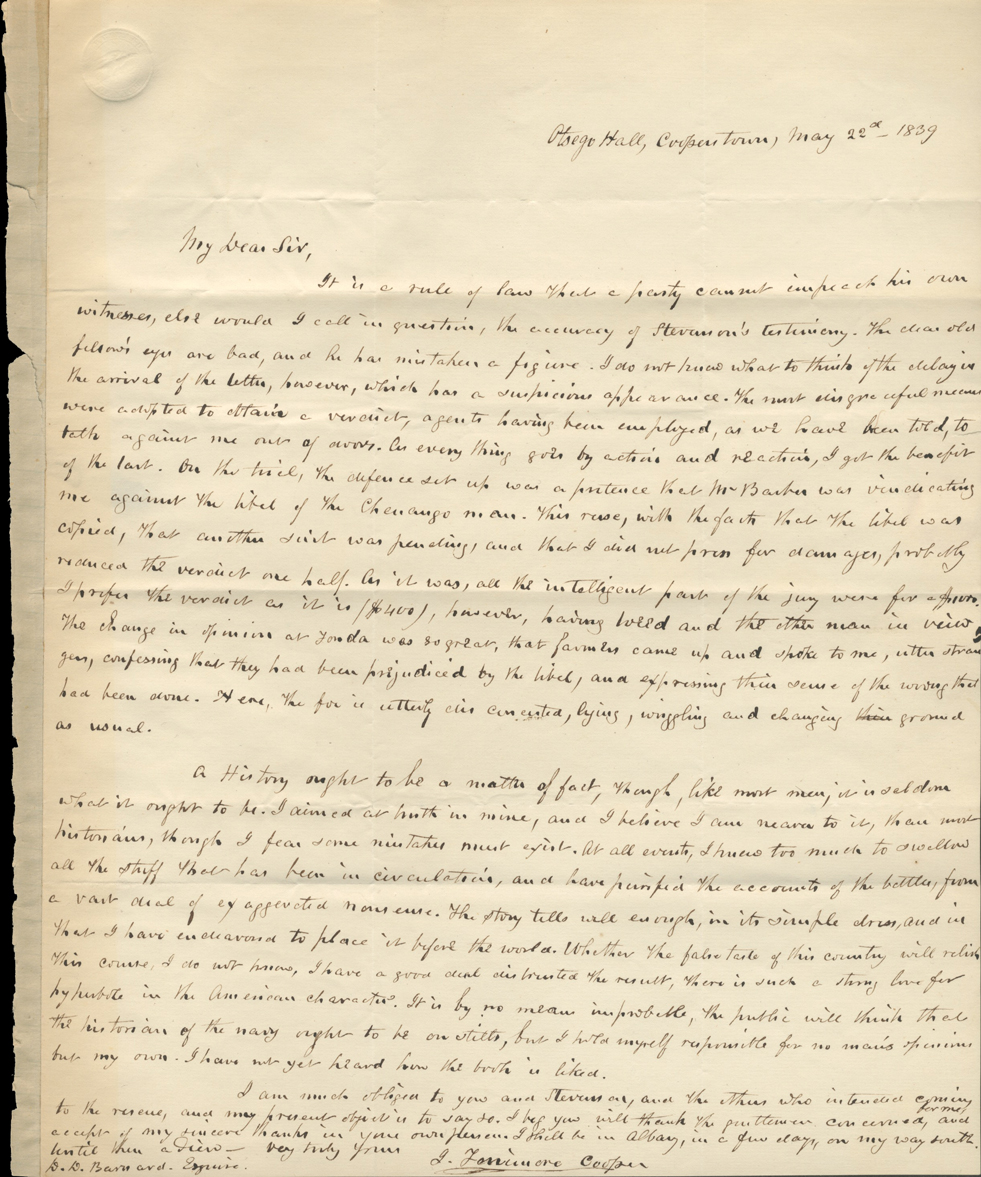 Otsego Hall, Cooperstown, May 22d 1839
My Dear Sir,
It is a rule of law that a party cannot impeach his own
witnesses, else would I call in question, the accuracy of Stevenson's testimony. The dear old
fellow's eyes are bad, and he has mistaken a figure. I do not know what to think of the delay in
the arrival of the letter, however, which has a suspicious appearance. The most disgraceful means
were adopted to obtain a verdict, agents having been employed, as we have been told, to
talk against me out of doors. As every thing goes by action and reaction, I got the benefit
of the last. On the trial, the defence set up was a pretence that Mr Barber was vindicating
me against the libel of the Chenango man. This ruse, with the facts that the libel was
copied, that another suit was pending, and that I did not press for damages, probably
reduced the verdict one half. As it was, all the intelligent part of the jury were for
I prefer the verdict as it is ($400), however, having Weed and the other man in view.
The change in opinion at Fonda was so great, that farmers came up and spoke to me, utter stran
gers, confessing that they had been prejudiced by the libel, and expressing their sense of the wrong that
had been done. Here, the foe is utterly disconcerted, lying, wriggling and changing their ground
as usual.
A History ought to be a matter of fact, though, like most men, it is seldom
what it ought to be. I aimed at truth in mine, and I believe I am nearer to it, than most
historians, though I fear some mistakes must exist. At all events, I knew too much to swallow
all the stuff that has been in circulation, and have purified the accounts of the battles, from
a vast deal of exaggerated nonsense. The story tells well enough, in its simple dress, and in
that I have endeavored to place it before the world. Whether the false taste of this country will relish
this course, I do not know, I have a good deal distrusted the result, there is such a strong love for
hyperbole in the American character. It is by no mean improbable, the public will think that
the historian of the navy ought to be on stilts, but I hold myself responsible for no man's opinions
but my own. I have not yet heard how the book is liked.
I am much obliged to you and Stevenson, and the others who intended coming
to the rescue, and my present object is to say so. I beg you will thank the gentlemen concerned, for me, and
accept of my sincere thanks in your own person. I shall be in Albany, in a few days, on my way south.
Until then adieu— very truly yours
J. Fenimore Cooper
D. D. Barnard. Esquire.